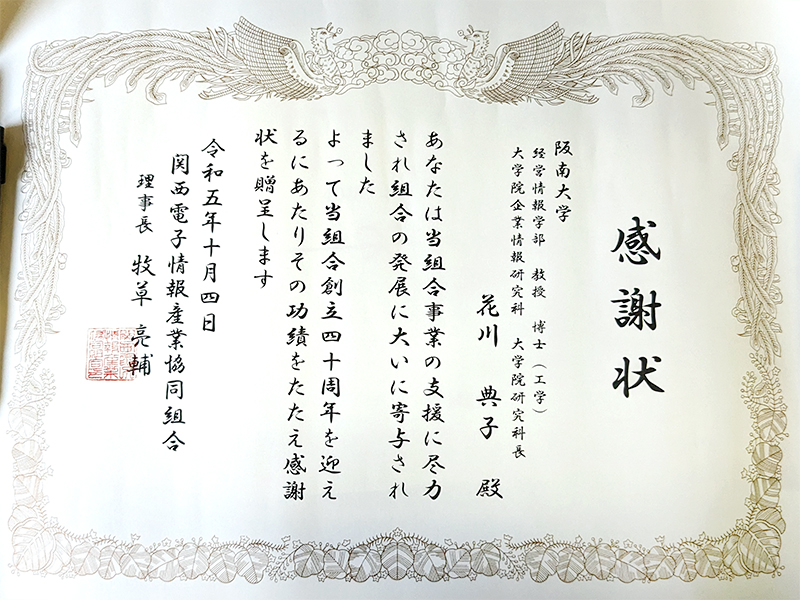 感謝状
阪南大学
経営情報学部 教授 博士（工学）
大学院企業情報研究科 大学院研究科長
花川 典子 殿
あなたは当組合事業の支援に尽力
され組合の発展に大いに寄与され
ました
よって当組合創立四十周年を迎え
るにあたりその功績をたたえ感謝
状を贈呈します
令和五年十月四日
関西電子情報産業協同組合
理事長 牧草 亮輔